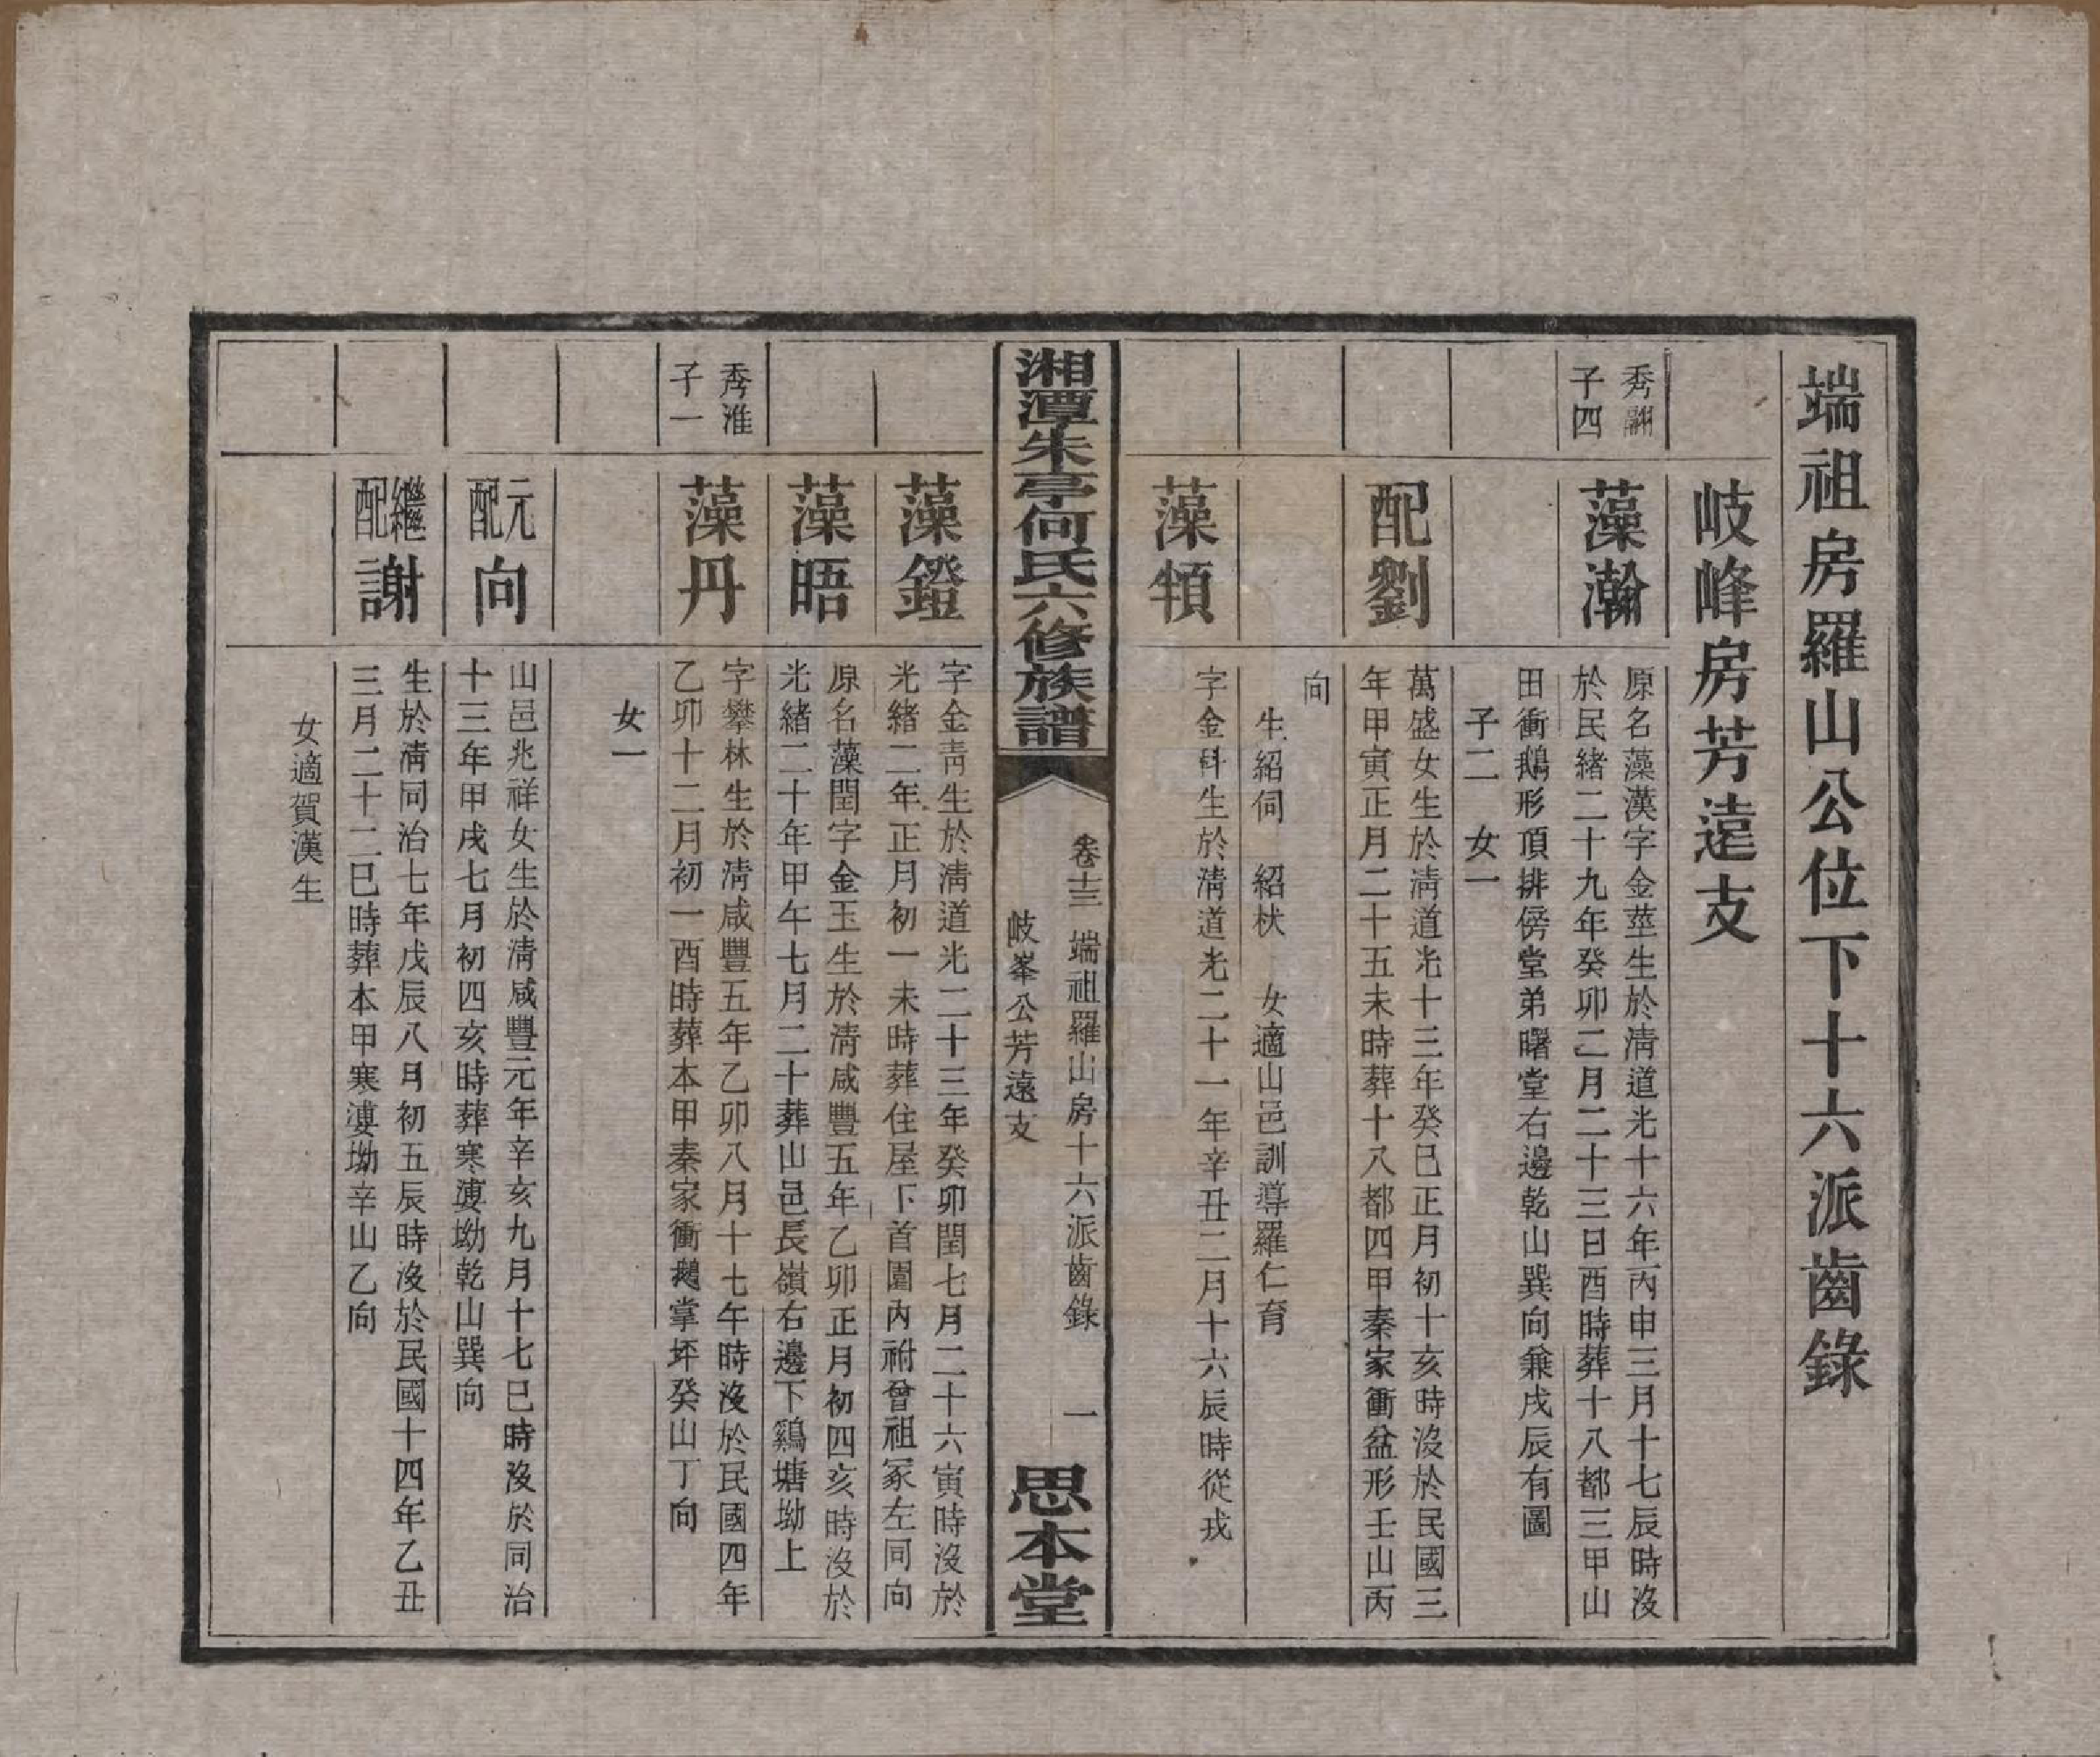 端祖房羅山公位下十六派齒錄
岐峰房芳遠支
秀翤
子四
藻瀚
原名藻漢字金莖生於清道光十六年丙申三月十七辰時沒
於民緒二十九年癸卯二月二十三日酉時葬十八都三甲山
田衝鵝形頂排傍堂弟曙堂右邊乾山巽向兼戌辰有圖
子二　女一
配劉
萬盛女生於清道光十三年癸巳正月初十亥時沒於民國三
年甲寅正月二十五未時葬十八都四甲秦家衝盆形壬山丙
向
生紹伺　紹栿　女適山邑訓導羅仁育
藻頖
字金科生於清道光二十一年辛丑二月十六辰時從戎
湘潭朱亭何氏六修族譜
卷十三　端祖羅山房十六派齒錄　一
岐峯公芳遠支
思本堂
藻鐙
字金靑生於清道光二十三年癸卯閏七月二十六寅時沒於
光緒二年正月初一未時葬住屋下首園內祔曾祖冢左同向
藻晤
原名藻閏字金玉生於清咸豐五年乙卯正月初四亥時沒於
光緒二十年甲午七月二十葬山邑長嶺右邊下鷄塘坳上
秀淮
子一
藻丹
字攀林生於清咸豐五年乙卯八月十七午時沒於民國四年
乙卯十二月初一酉時葬本甲秦家衝鵝掌坪癸山丁向
女一
元配向
山邑兆祥女生於清咸豐元年辛亥九月十七巳時沒於同治
十三年甲戌七月初四亥時葬寒婆坳乾山巽向
繼配謝
生於清同治七年戊辰八月初五辰時沒於民國十四年乙丑
三月二十二巳時葬本甲寒婆坳辛山乙向
女適賀漢生